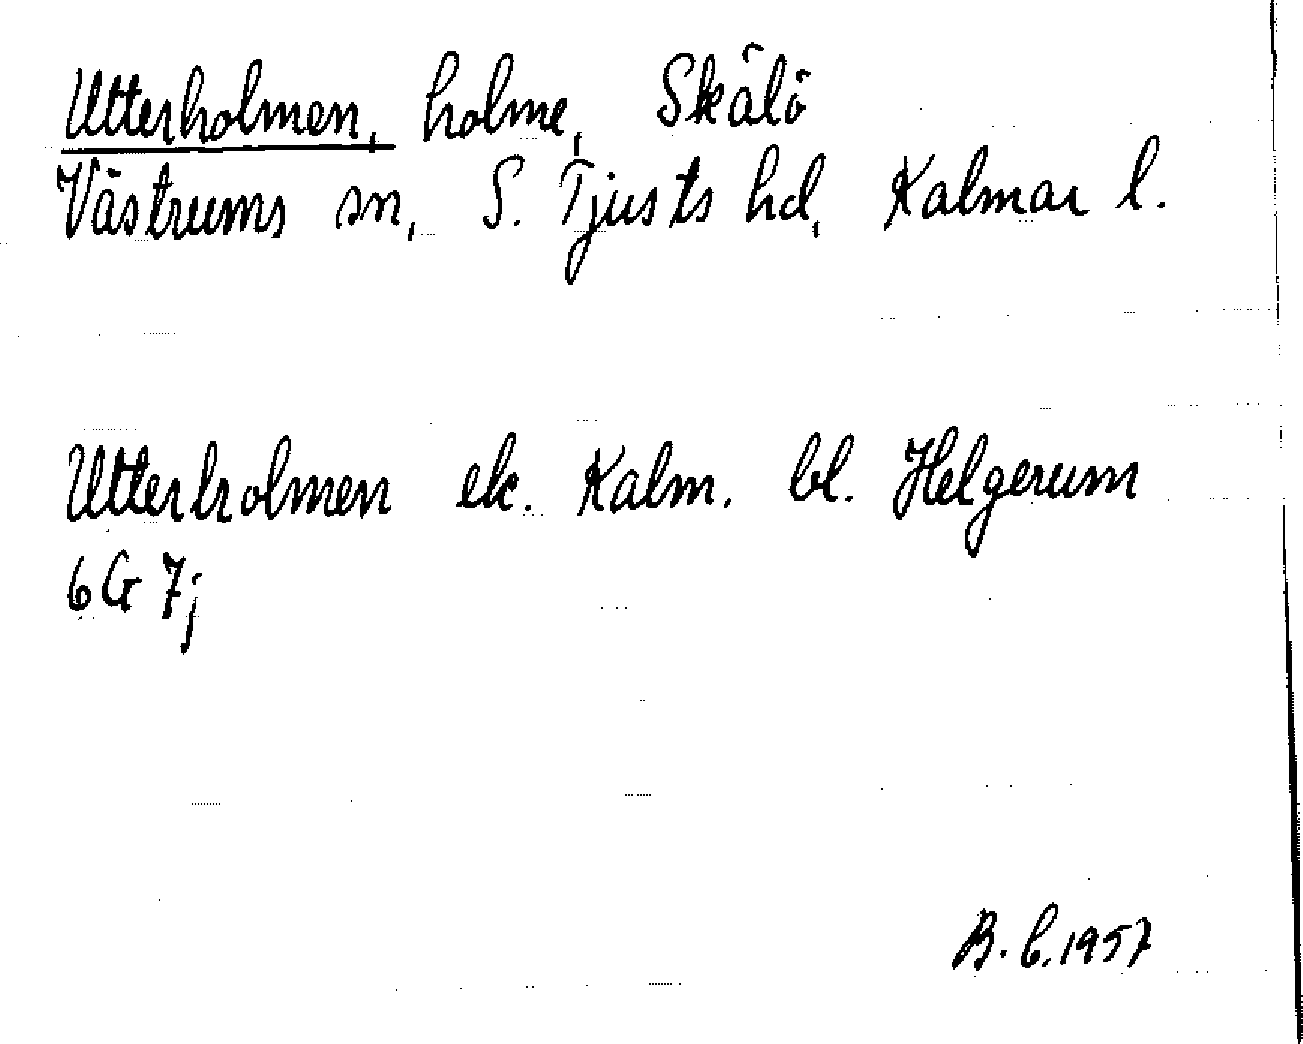 Utterholmen, holme, Skälö
Västrums sn, S. Tjusts hd, Kalmar l.
Utterholmen ek. Kalm. bl. Helgerum
6G 7j
B. b. 1957